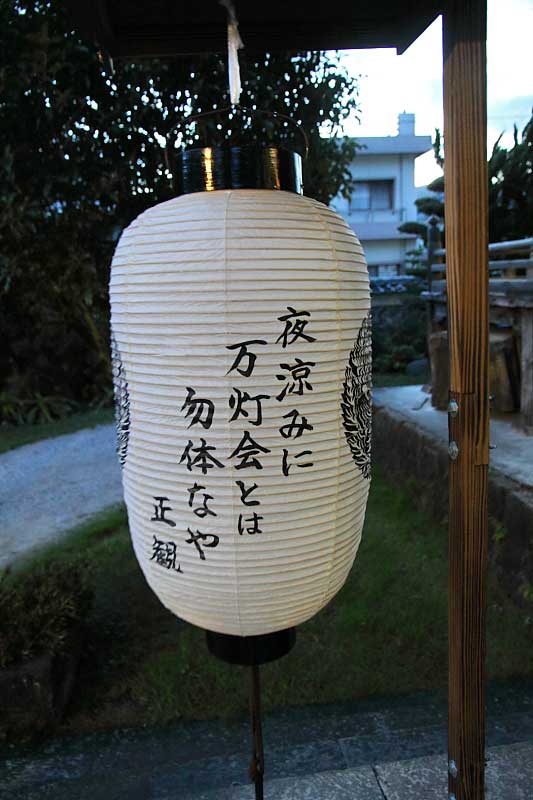 夜涼みに
万灯会とは
勿体なや
正観